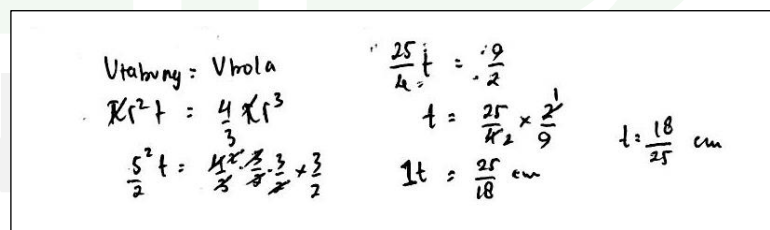 Vtabung = Vbola
πr²t = 4/3 πr³
5²/2 t = 4²/3 · 3/2 · 3/2 × 3/2
25/4 t = 9/2
t = 25/4 2 × 2 1/9
1t = 25/18 cm
t = 18/25 cm